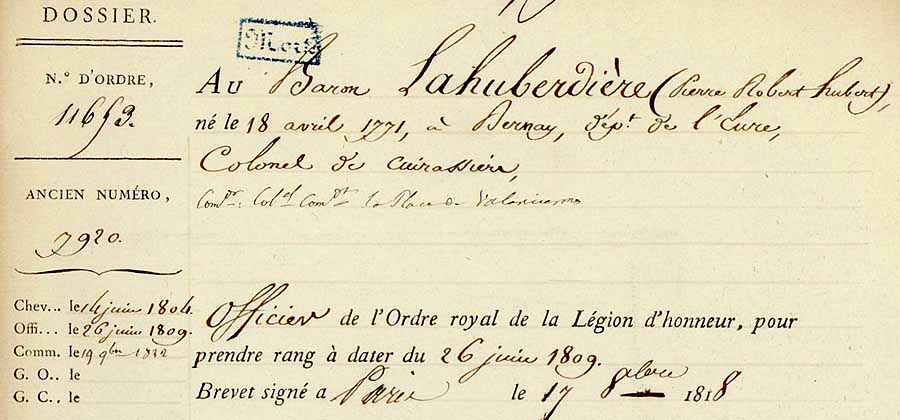 DOSSIER.
N.° D'ORDRE,
11653.
ANCIEN NUMÉRO,
7920.
Chev... le 14 juin 1804.
Offi... le 26 juin 1809.
Comm. le 19 9bre 1832
G. O.. le
G. C., le
Mort
Au Baron Lahuberdière (Pierre Robert hubert),
né le 18 avril 1771, à Bernay, dépt. de l'Eure,
Colonel de cuirassiers,
Comdr: Colel Comdt la Place de Valenciennes
Officier de l'Ordre royal de la Légion d'honneur, pour
prendre rang à dater du 26 juin 1809.
Brevet signé a Paris le 17 8bre 1818